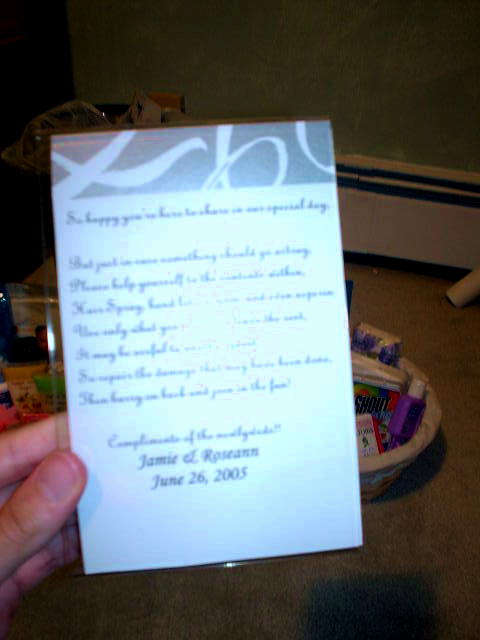 So happy you're here to share in our special day.
But just in case something should go astray,
Please help yourself to the contents within,
Hair Spray, hand and even aspirin
Use only what you leave the rest,
It may be useful to guest
So repair the damage that may have been done,
Then hurry on back and join in the fun!
Compliments of the newlyweds!!
Jamie & Roseann
June 26, 2005
SHOUT